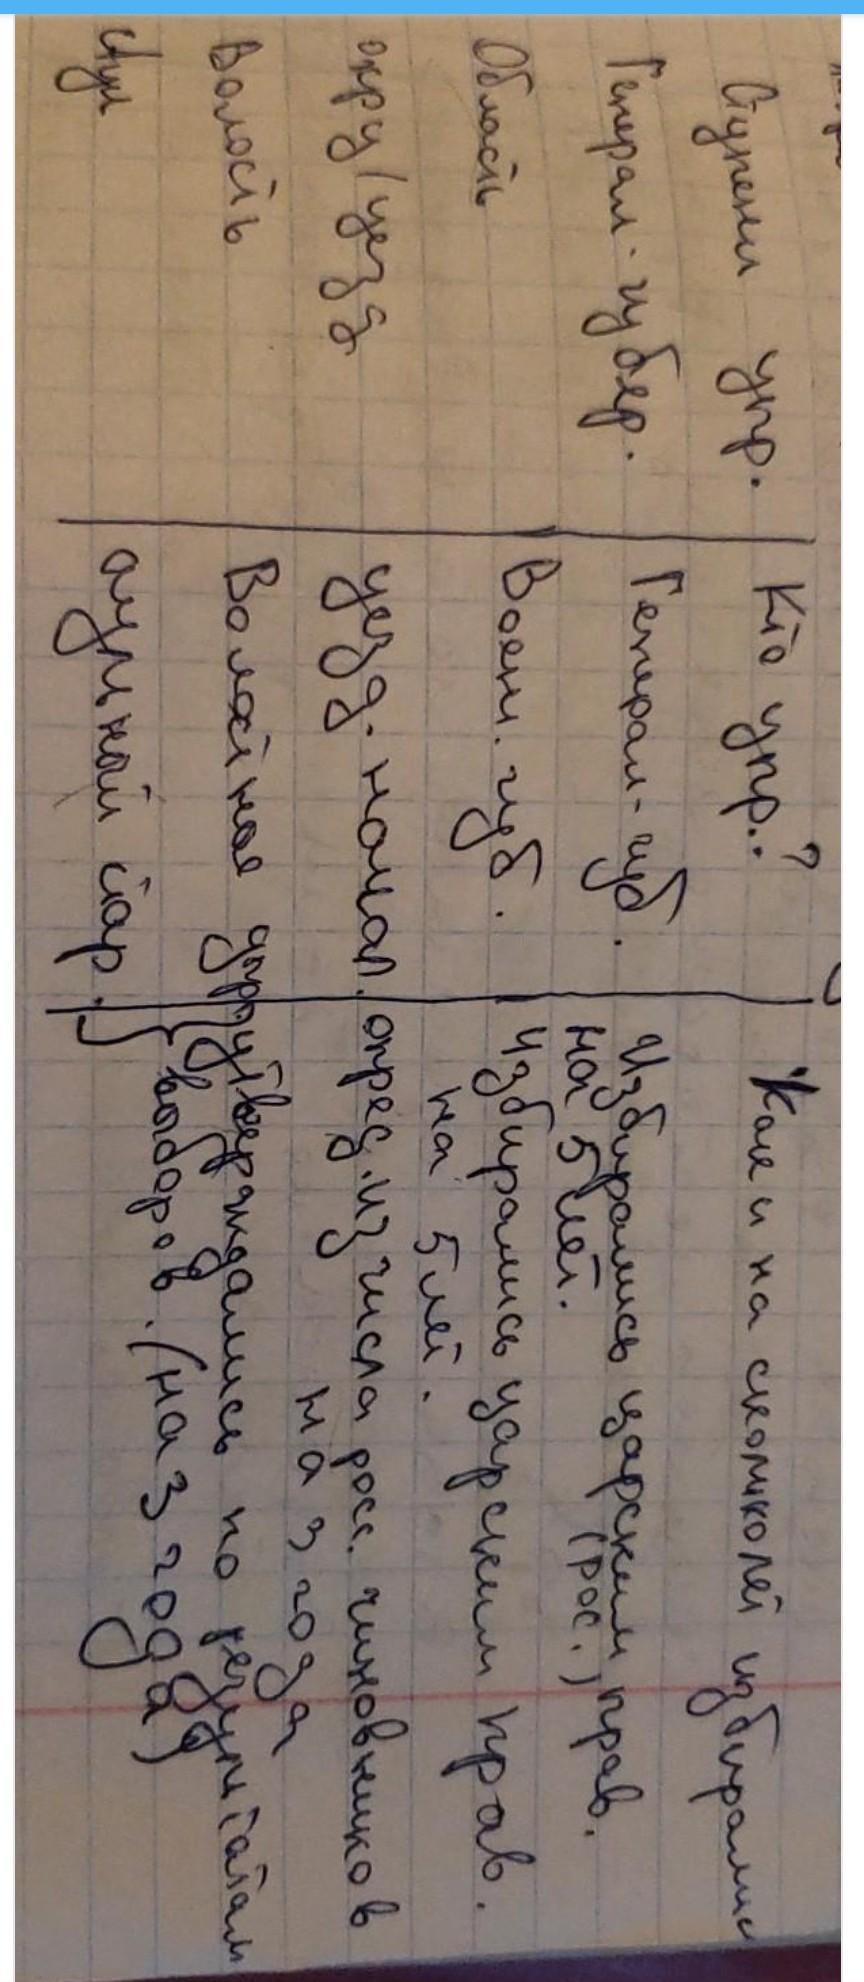 Ступени упр. Кто упр.? Как и на сколколет избирались
Генерал-губер. Генерал-губ. Избирались царским прав.
на 5 лет. (рос.)
Область Воен. губ. избирались царским прав.
на 5 лет.
округ/уезд уезд. начал. опред. из числа росс. чиновников
на 3 года
Волость Волостное утверждались по результатам
Аул аульный стар. выборов. (на 3 года)